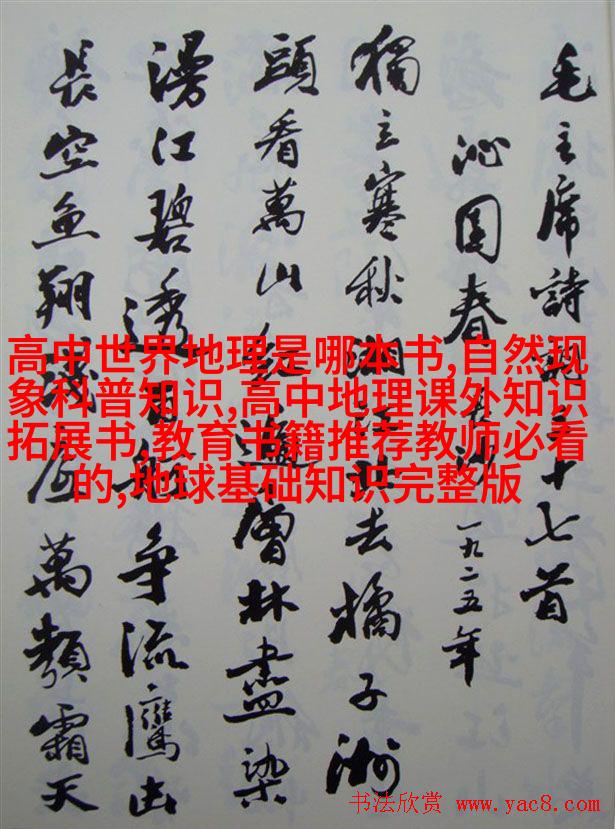 毛主席詩詞三十七首
沁園春 長沙 一九二五年
獨立寒秋湘江北去橘子洲
頭看萬山紅遍層林盡染
漫江碧透百舸争流鷹击
長空魚翔淺底萬類霜天
高中世界地理是哪本书,自然现
象科普知识,高中地理课外知识
拓展书,教育书籍推荐教师必看
的,地球基础知识完整版
书法欣赏 www.yac8.com